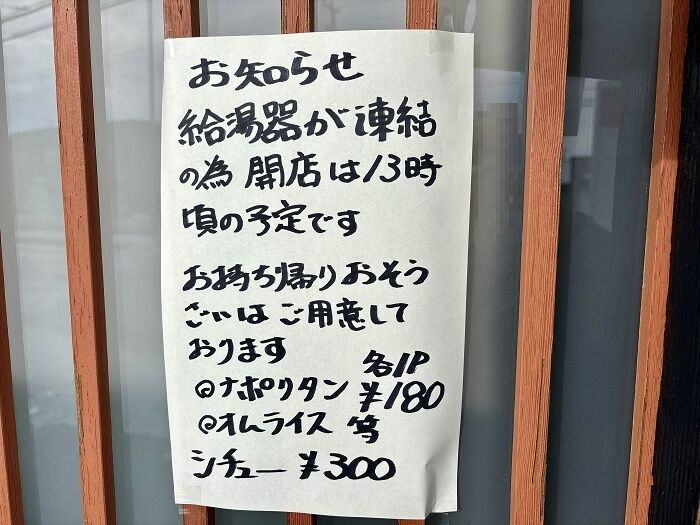 お知らせ
給湯器が凍結
の為 開店は13時
頃の予定です
お持ち帰りおそう
ざいはご用意して
おります
各1P
◎ナポリタン ¥180
◎オムライス 等
シチュー ¥300